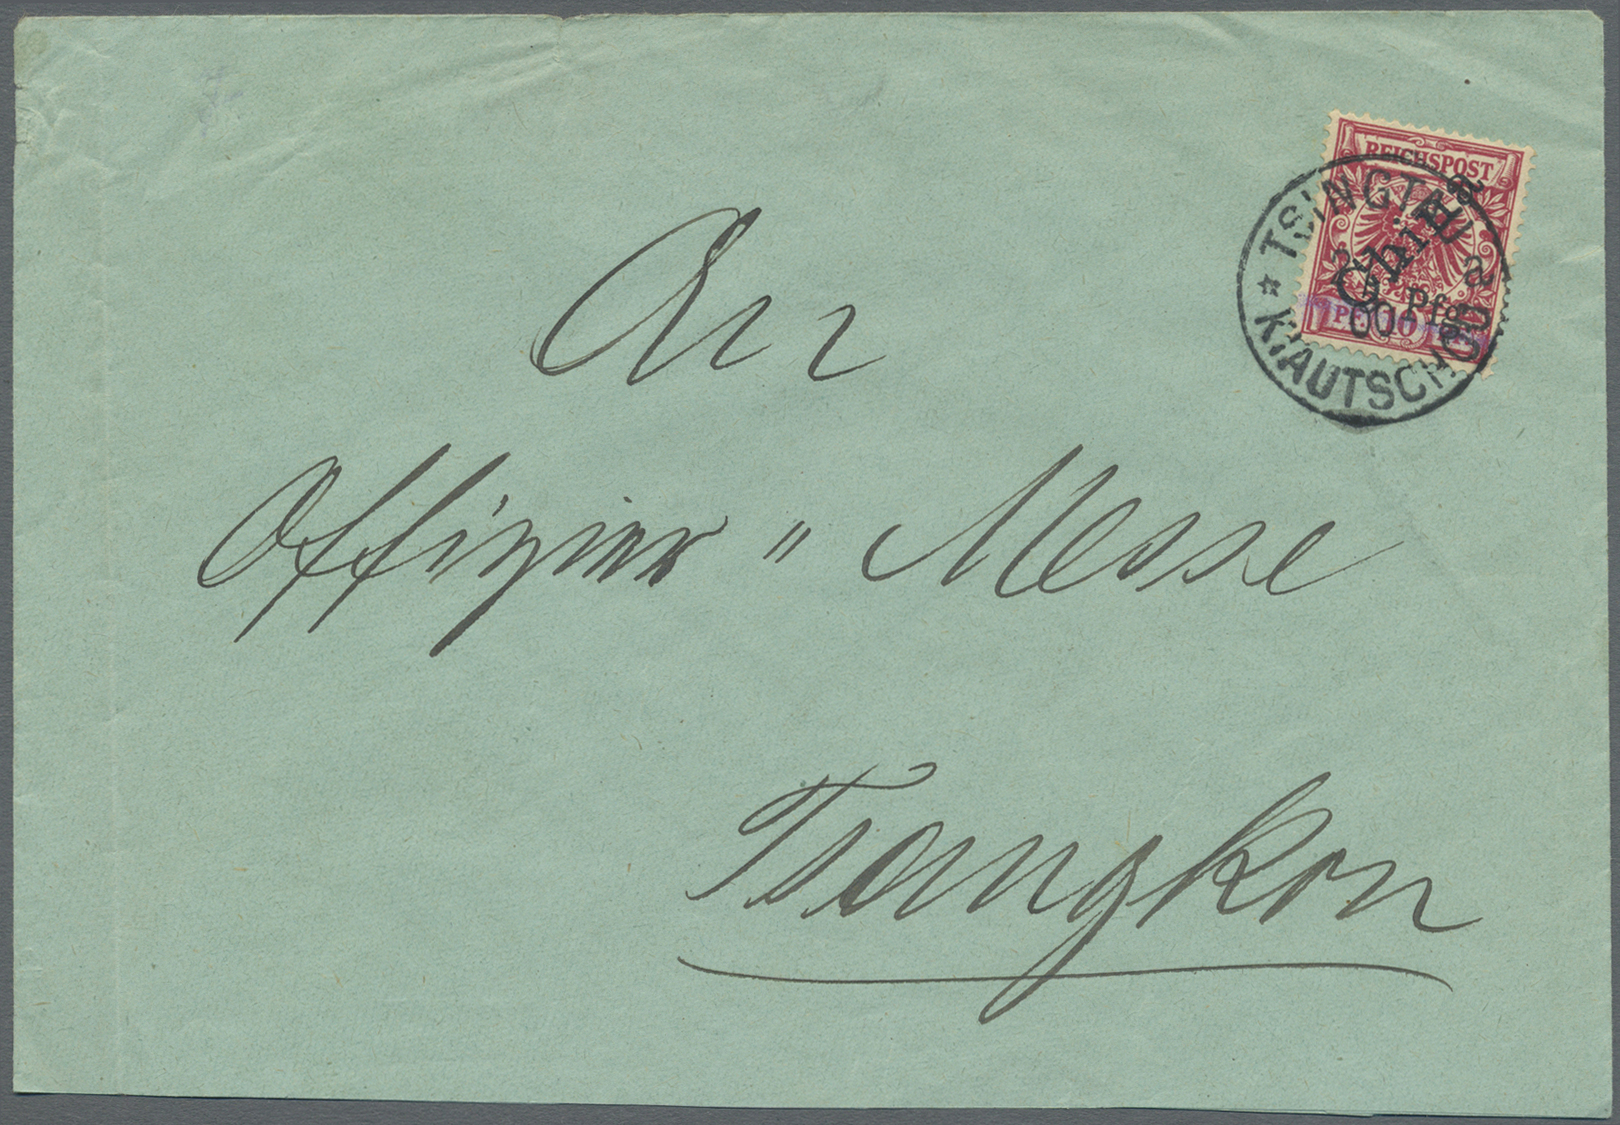 REICHSPOST
China
5 Pfg.
PF. 10 PF.
TSINGTAU
KIAUTSCHOU
a
00
An
Offizier " Messe
Tsangkon